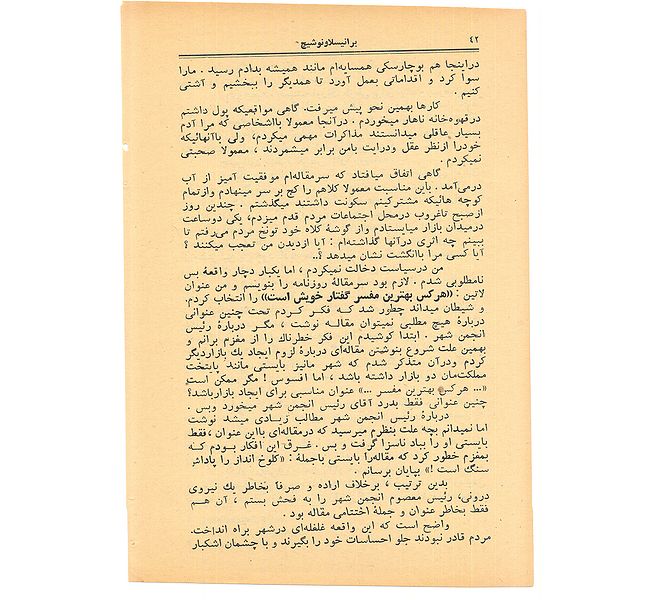 ٤٢
برانیسلاونوشیچ
دراینجا هم بوچارسکی همسایه‌ام مانند همیشه بدادم رسید . مارا
سوا کرد و اقداماتی بعمل آورد تا همدیگر را ببخشیم و آشتی
کنیم .
کارها بهمین نحو پیش میرفت. گاهی مواقعیکه پول داشتم
درقهوه‌خانه ناهار میخوردم . درآنجا معمولا بااشخاصی که مرا آدم
بسیار عاقلی میدانستند مذاکرات مهمی میکردم، ولی باآنهائیکه
خودرا ازنظر عقل ودرایت بامن برابر میشمردند ، معمولا صحبتی
نمیکردم .
گاهی اتفاق میافتاد که سرمقاله‌ام موفقیت آمیز از آب
درمی‌آمد . باین مناسبت معمولا کلاهم را کج بر سر مینهادم وازتمام
کوچه هائیکه مشترکینم سکونت داشتند میگذشتم . چندین روز
ازصبح تاغروب درمحل اجتماعات مردم قدم میزدم، یکی دوساعت
درمیدان بازار میایستادم واز گوشهٔ کلاه خود تونخ مردم می‌رفتم تا
ببینم چه اثری درآنها گذاشته‌ام : آیا ازدیدن من تعجب میکنند ؟
آیا کسی مرا باانگشت نشان میدهد ؟..
من درسیاست دخالت نمیکردم ، اما یکبار دچار واقعهٔ بس
نامطلوبی شدم . لازم بود سرمقالهٔ روزنامه را بنویسم و من عنوان
لاتین : ((هرکس بهترین مفسر گفتار خویش است)) را انتخاب کردم.
و شیطان میداند چطور شد که فکر کردم تحت چنین عنوانی
دربارهٔ هیچ مطلبی نمیتوان مقاله نوشت ، مگر دربارهٔ رئیس
انجمن شهر . ابتدا کوشیدم این فکر خطرناك را از مغزم برانم و
بهمین علت شروع بنوشتن مقاله‌ای دربارهٔ لزوم ایجاد یك بازاردیگر
کردم ودرآن متذکر شدم که شهر مانیز بایستی مانند پایتخت
مملکت‌مان دو بازار داشته باشد ، اما افسوس ! مگر ممکن است
«... هرکس بهترین مفسر ...» عنوان مناسبی برای ایجاد بازارباشد؟
چنین عنوانی فقط بدرد آقای رئیس انجمن شهر میخورد وبس .
دربارهٔ رئیس انجمن شهر مطالب زیادی میشد نوشت
اما نمیدانم بچه علت بنظرم میرسید که درمقاله‌ای بااین عنوان ،فقط
بایستی او را بباد ناسزا گرفت و بس . غرق این افکار بودم که
بمغزم خطور کرد که مقاله‌را بایستی باجملهٔ : «کلوخ انداز را پاداش
سنگ است !» بپایان برسانم .
بدین ترتیب ، برخلاف اراده و صرفاً بخاطر یك نیروی
درونی، رئیس معصوم انجمن شهر را به فحش بستم ، آن هم
فقط بخاطر عنوان و جملهٔ اختتامی مقاله بود .
واضح است که این واقعه غلغله‌ای درشهر براه انداخت.
مردم قادر نبودند جلو احساسات خود را بگیرند و با چشمان اشکبار